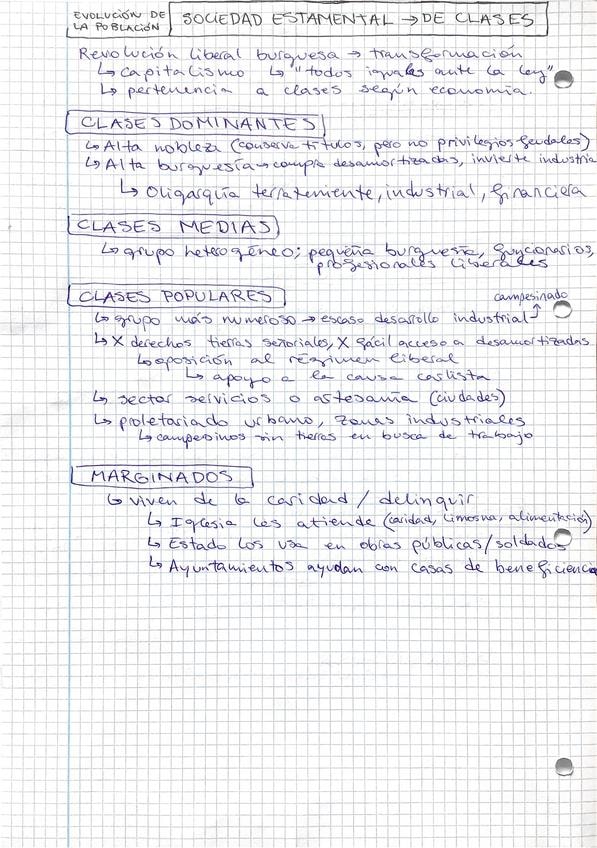 EVOLUCIÓN DE LA POBLACIÓN
SOCIEDAD ESTAMENTAL → DE CLASES
Revolución liberal burguesa → transformación
↳ capitalismo ↳ "todos iguales ante la ley"
↳ pertenencia a clases según economía.
CLASES DOMINANTES
↳ Alta nobleza (conserva títulos, pero no privilegios feudales)
↳ Alta burguesía → compra desamortizadas, invierte industria
↳ Oligarquía terrateniente, industrial, financiera
CLASES MEDIAS
↳ grupo heterogéneo; pequeña burguesía, funcionarios,
profesionales liberales
CLASES POPULARES
campesinado
↳ grupo más numeroso → escaso desarollo industrial
↳ X derechos tierras señoriales, X fácil acceso a desamortizadas
↳ oposición al régimen liberal
↳ apoyo a la causa carlista
↳ sector servicios o artesanía (ciudades)
↳ proletariado urbano, zonas industriales
↳ campesinos sin tierras en busca de trabajo
MARGINADOS
↳ viven de la caridad / delinquir
↳ Iglesia les atiende (caridad, limosna, alimentación)
↳ Estado los usa en obras públicas/soldados
↳ Ayuntamientos ayudan con casas de beneficiencia